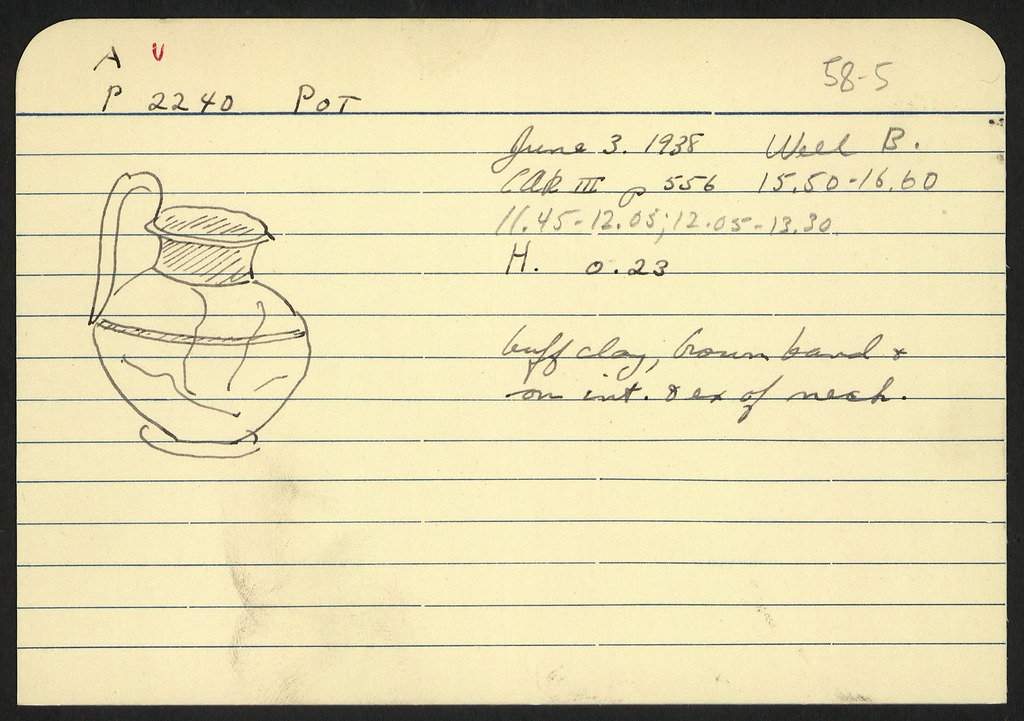 A V
58-5
P 2240 POT
June 3. 1938 Well B.
CAR III p 556 15.50-16.60
11.45-12.05; 12.05-13.30
H. 0.23
buff clay, brown band &
on int. & ex of neck.